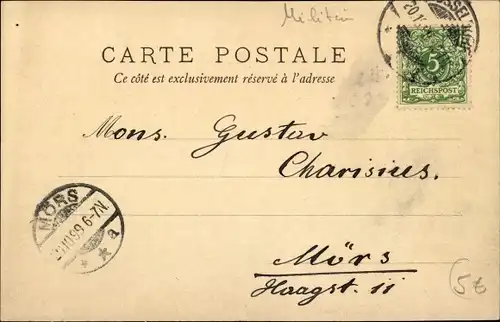 Militär
CARTE POSTALE
Ce côté est exclusivement réservé à l'adresse
5
REICHSPOST
Mons. Gustav
Charisius.
MÖRS
6-7N.
a
Mörs
Haagst. 11
5€